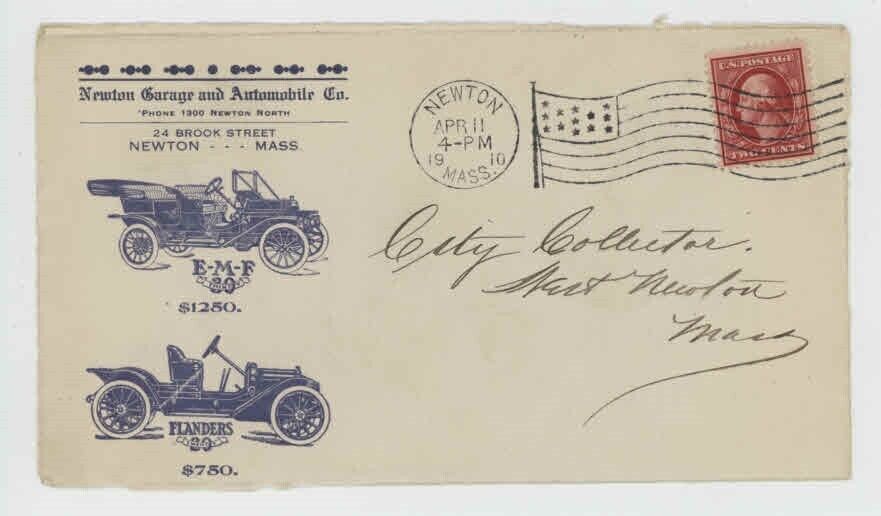 Newton Garage and Automobile Co.
'PHONE 1300 NEWTON NORTH
24 BROOK STREET
NEWTON - - - MASS.
E-M-F
30
$1250.
FLANDERS
20
$750.
NEWTON
APR 11
4-PM
19 10
MASS.
U.S. POSTAGE
TWO CENTS
City Collector.
West Newton
Mass